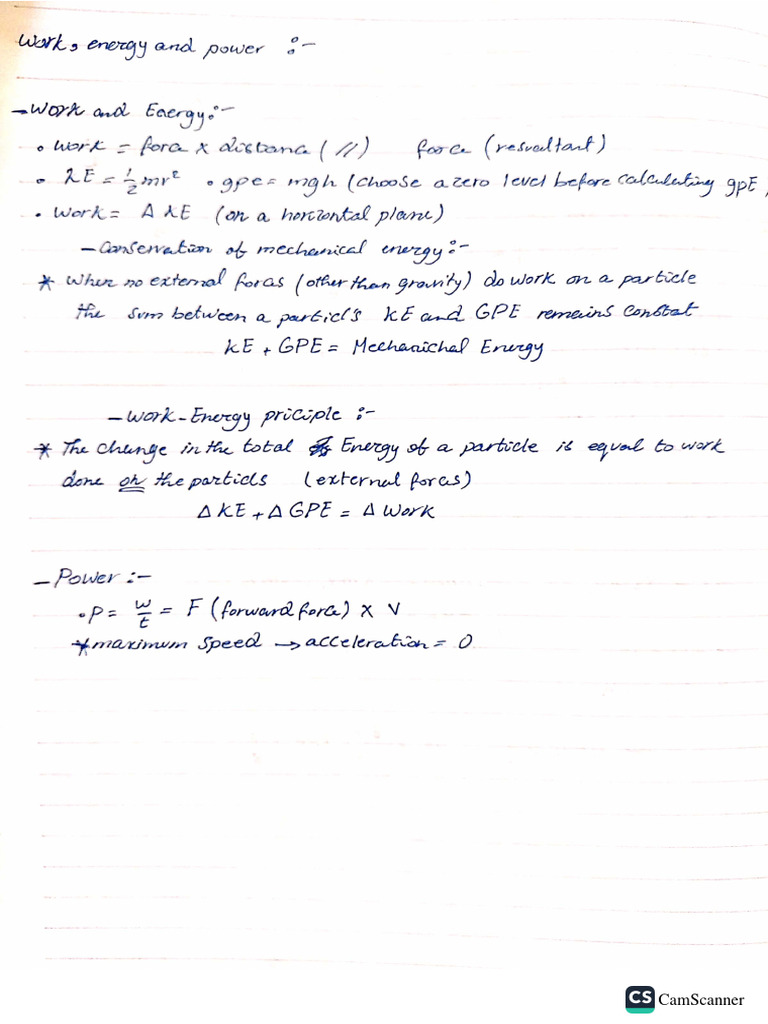 Work, energy and power :-
- Work and Energy:-
• Work = force x distance (//) force (resultant)
• KE = 1/2 mv² • gpe = mgh (choose a zero level before calculating gpE,
• Work = Δ KE (on a horizontal plane)
- Conservation of mechanical energy:-
* When no external forces (other than gravity) do work on a particle
the sum between a particls KE and GPE remains constat
KE + GPE = Mechanichal Energy
- Work-Energy priciple :-
* The change in the total Energy of a particle is equal to work
done on the particls (external forces)
Δ KE + Δ GPE = Δ Work
- Power :-
• P = w/t = F (forward force) x V
* maximum speed → acceleration = 0
CS CamScanner